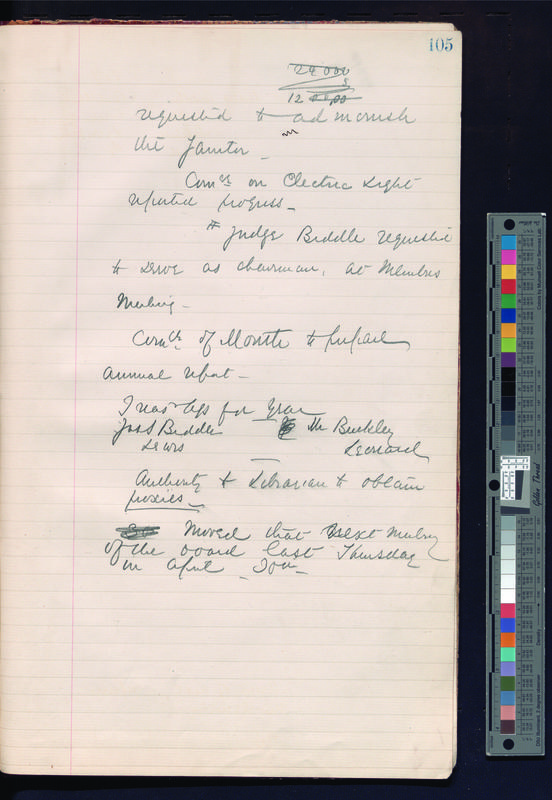 105
24 000
12 00.00
requested to admonish
the Janitor _
Comee on Electric Light
reported progress _
Judge Biddle requested
to serve as chairman, at Members
Meeting _
Comee of Month to prepare
annual report _
for Year
Biddle Mr Buckley
Lewis Leonard
Authority to Librarian to obtain
proxies _
Moved that next Meeting
of the board last Thursday
in April